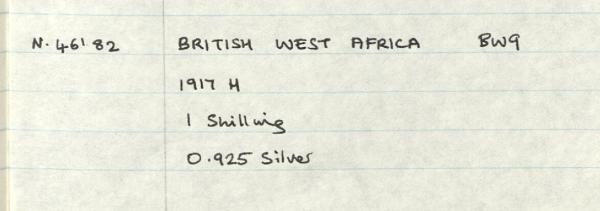 N. 46182 BRITISH WEST AFRICA BW9
1917 H
1 Shilling
0.925 Silver